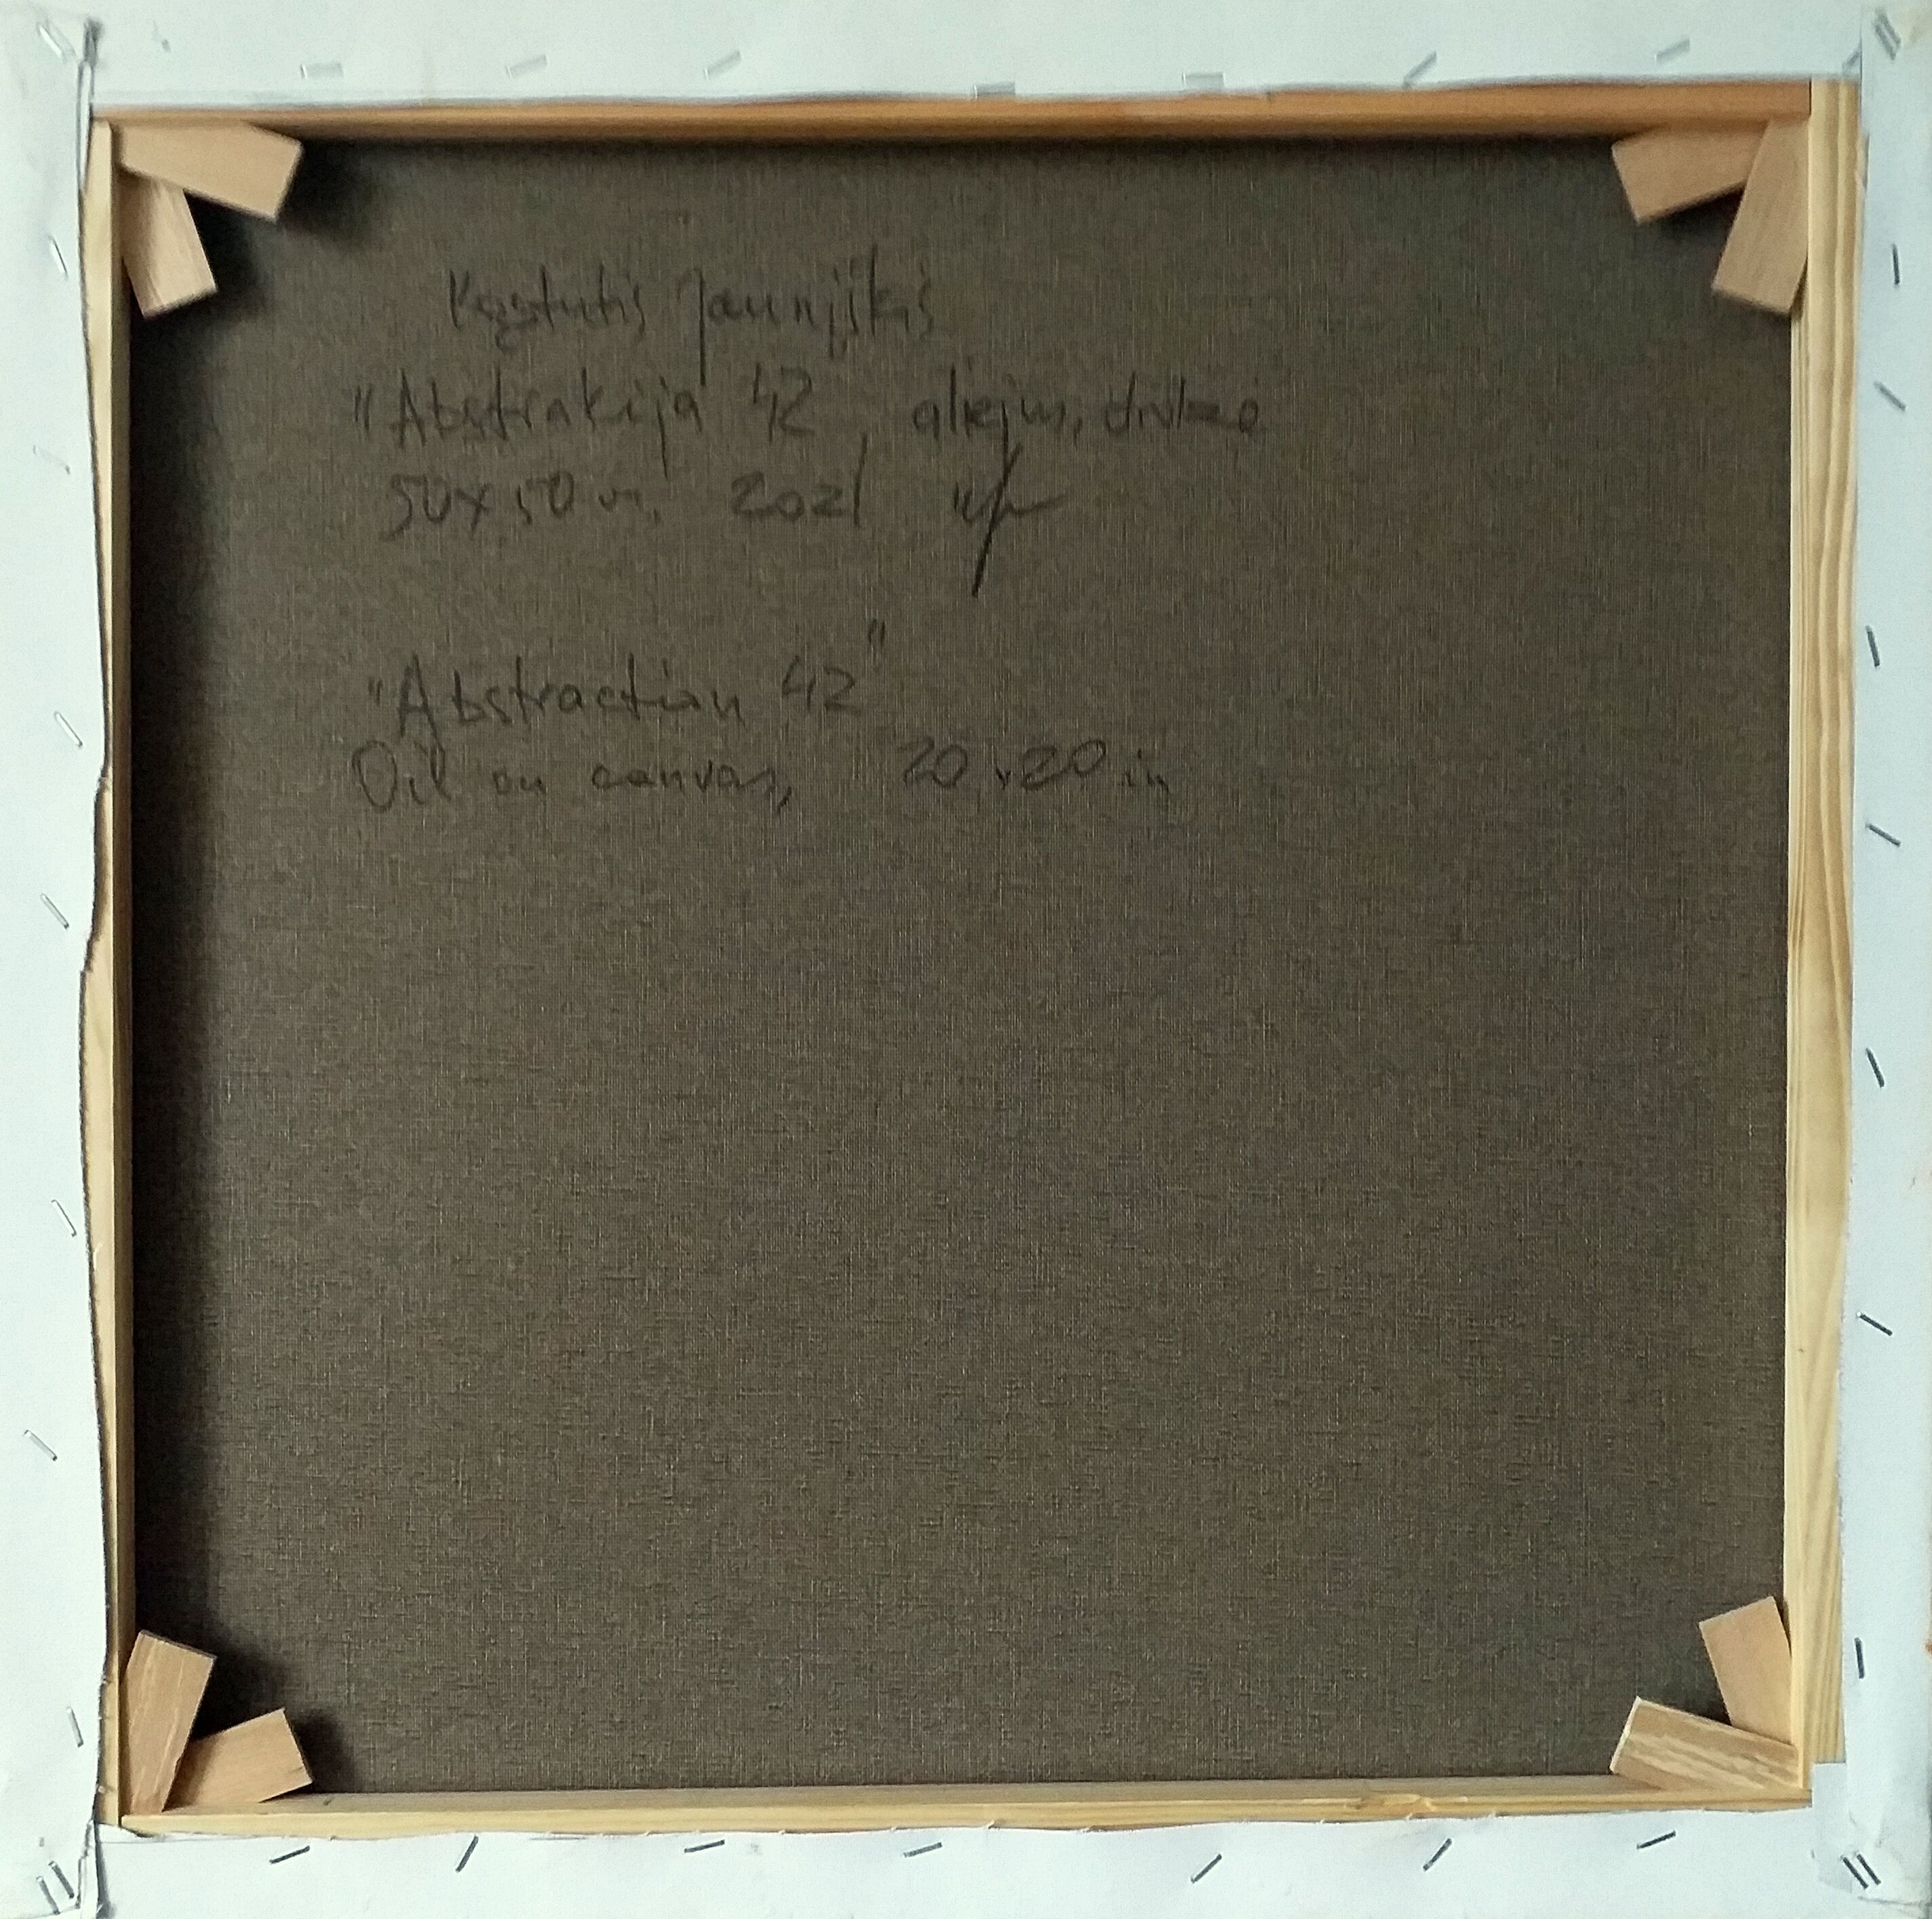 Kęstutis Jauniškis
"Abstrakija 42, aliejus, drobė
50x50 cm. 2021
"Abstraction 42"
Oil on canvas, 20x20 in